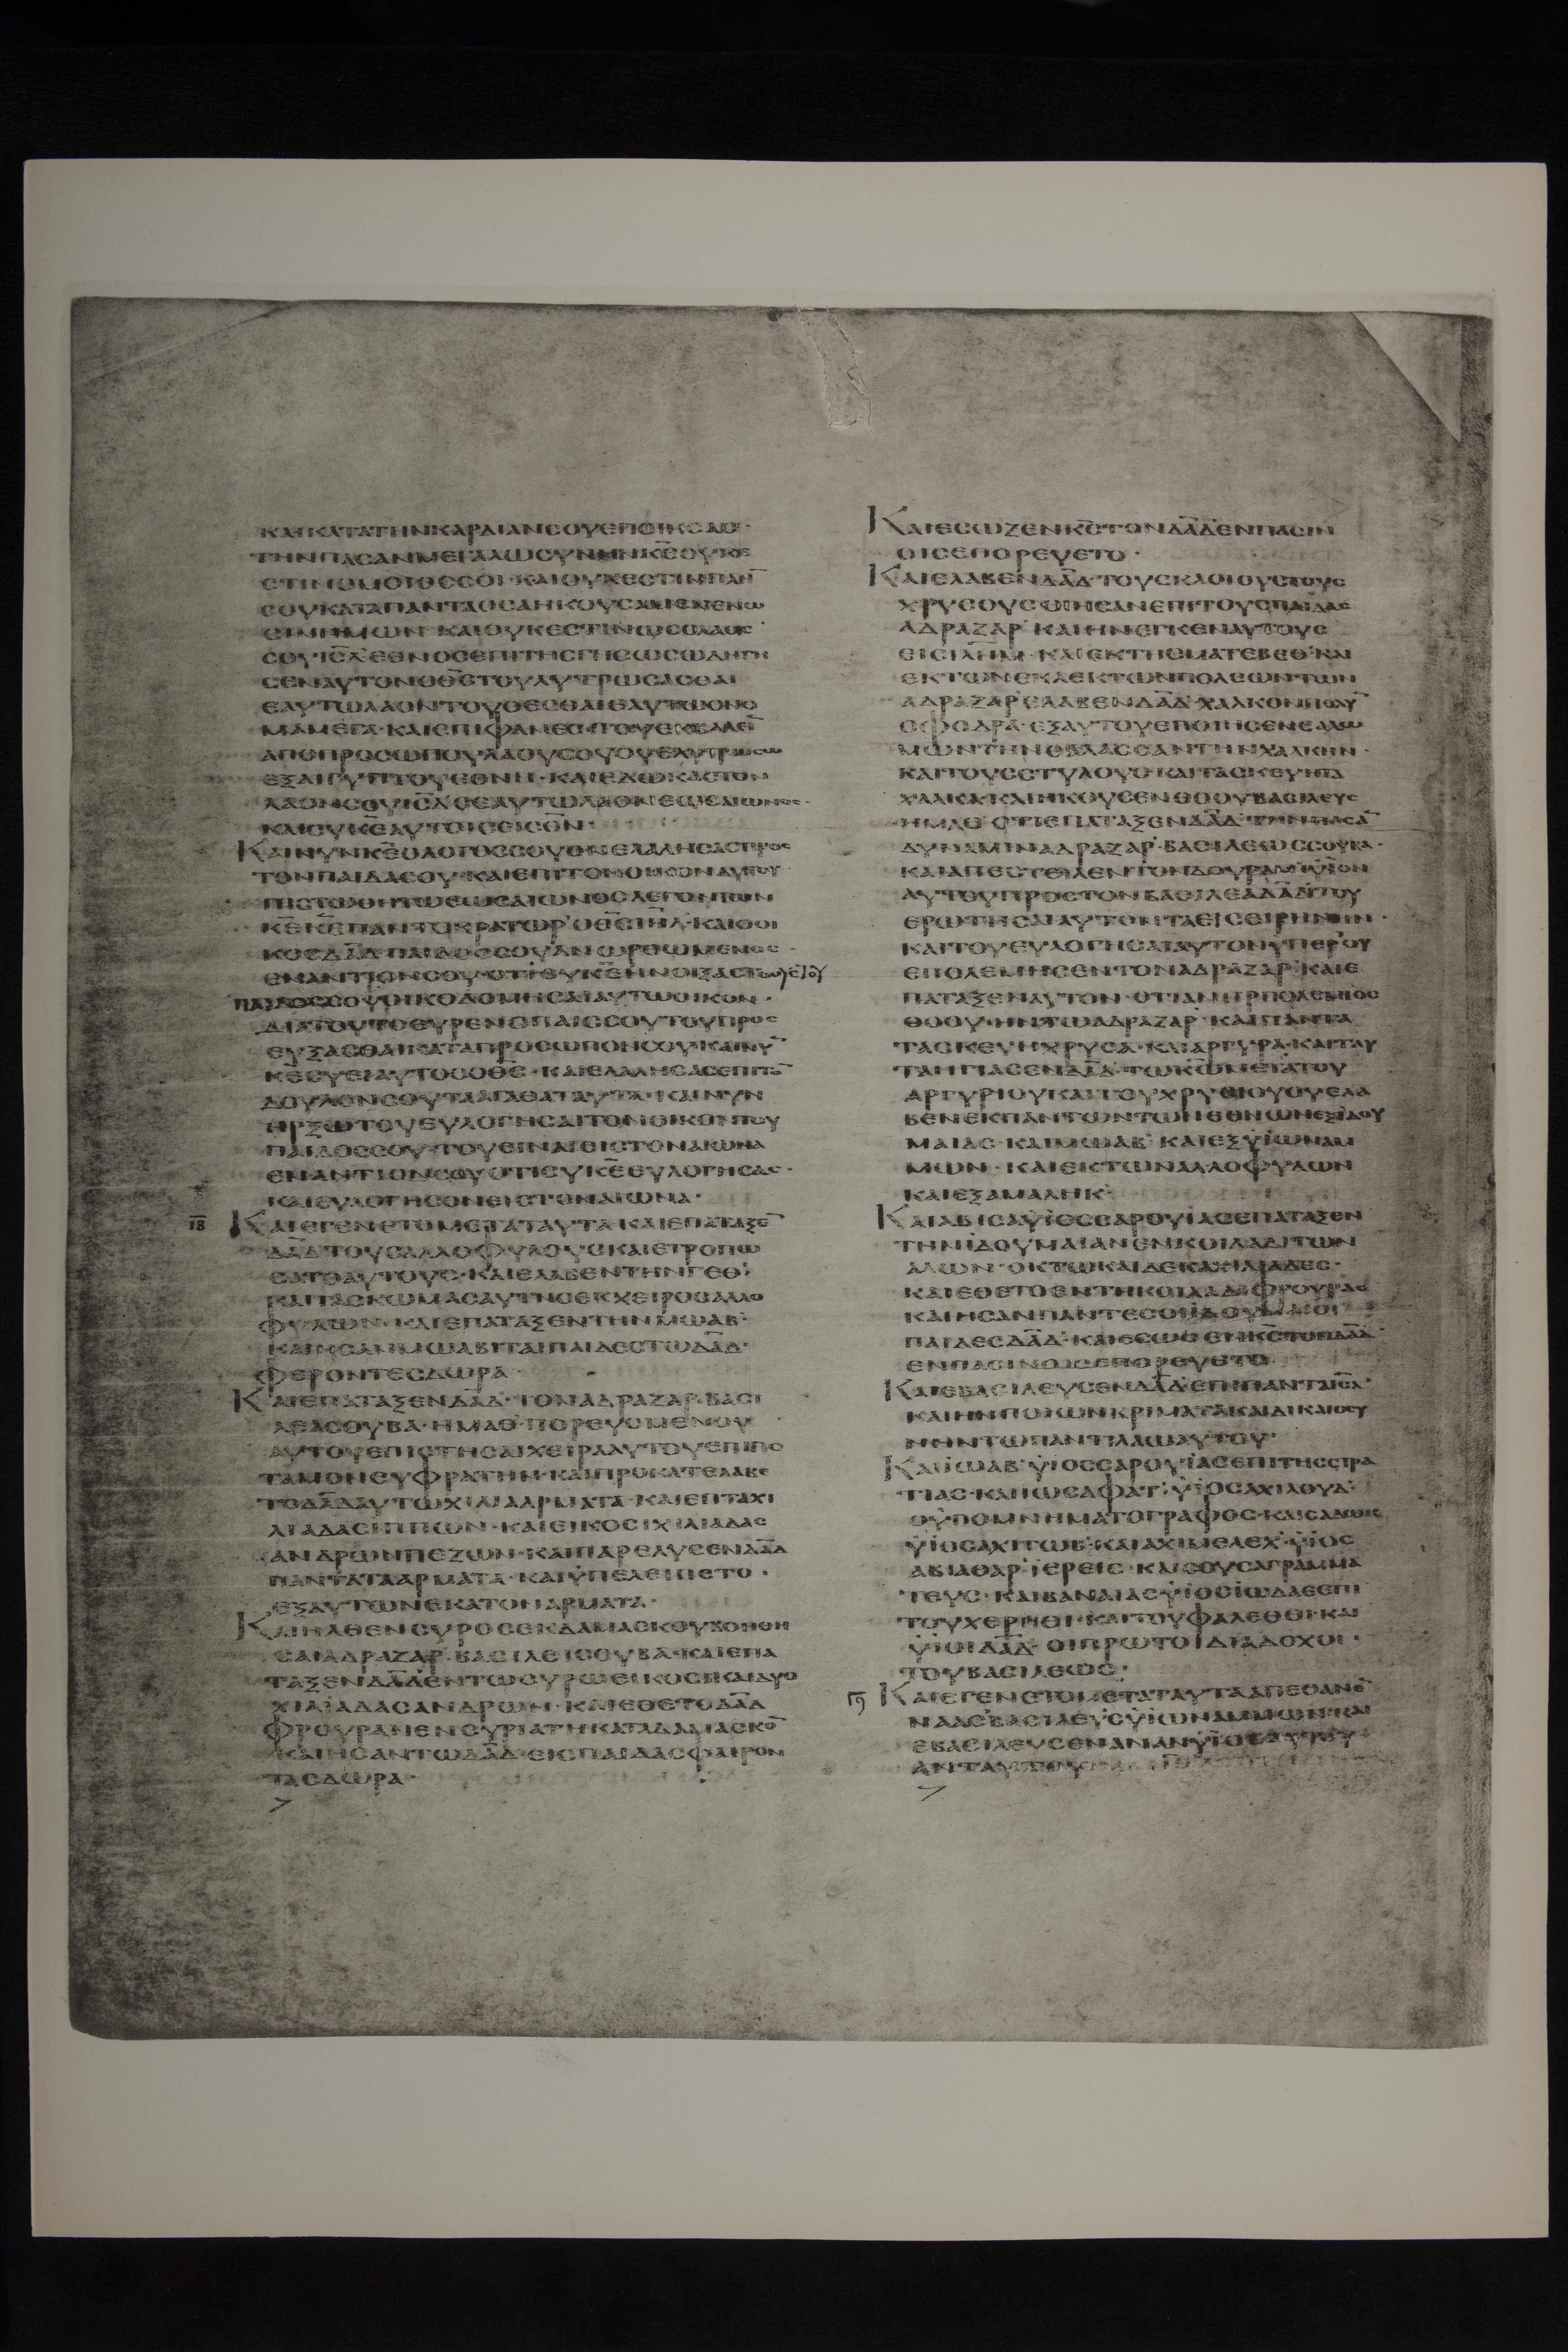 ΚΑΙΚΑΤΑΤΗΝΚΑΡΔΙΑΝΣΟΥΕΠΟΙΗΣΑΣ·
ΤΗΝΠΑΣΑΝΜΕΓΑΛΩΣΥΝΗΝΚ̅Ε̅ΟΥΚΕ
ΣΤΙΝΟΜΟΙΟΣΣΟΙ·ΚΑΙΟΥΚΕΣΤΙΝΠΛΗ̅
ΣΟΥΚΑΤΑΠΑΝΤΑΟΣΑΗΚΟΥΣΑΜΕΝΕΝΩ
ΣΙΝΗΜΩΝ·ΚΑΙΟΥΚΕΣΤΙΝΩΣΟΛΑΟΣ
ΣΟΥΙ̅Σ̅Λ̅ΕΘΝΟΣΕΠΙΤΗΣΓΗΣΩΣΩΔΗΓΗ
ΣΕΝΑΥΤΟΝΟΘ̅Σ̅ΤΟΥΛΥΤΡΩΣΑΣΘΑΙ
ΕΑΥΤΩΛΑΟΝΤΟΥΘΕΣΘΑΙΕΑΥΤΩΟΝΟ
ΜΑΜΕΓΑ·ΚΑΙΕΠΙΦΑΝΕΣ·ΤΟΥΕΚΒΑΛΕΙ̅
ΑΠΟΠΡΟΣΩΠΟΥΛΑΟΥΣΟΥΟΥΕΛΥΤΡΩΣΩ
ΕΞΑΙΓΥΠΤΟΥΕΘΝΗ·ΚΑΙΕΔΩΚΑΣΤΟΝ
ΛΑΟΝΣΟΥΙ̅Σ̅Λ̅ΣΕΑΥΤΩΛΑΟΝΕΩΣΑΙΩΝΟΣ·
ΚΑΙΣΥΚ̅Ε̅ΑΥΤΟΙΣΕΙΣΘ̅Ν̅·
ΚΑΙΝΥΝΚ̅Ε̅ΟΛΟΓΟΣΣΟΥΟΝΕΛΑΛΗΣΑΣΠΡΟΣ
ΤΟΝΠΑΙΔΑΣΟΥ·ΚΑΙΕΠΙΤΟΝΟΙΚΟΝΑΥΤΟΥ
ΠΙΣΤΩΘΗΤΩΕΩΣΑΙΩΝΟΣΛΕΓΟΝΤΩΝ
Κ̅Ε̅Κ̅Ε̅ΠΑΝΤΟΚΡΑΤΩΡ·ΟΘ̅Σ̅Ι̅Η̅Λ̅·ΚΑΙΟΟΙ
ΚΟΣΔ̅Α̅Δ̅ΠΑΙΔΟΣΣΟΥΑΝΩΡΘΩΜΕΝΟΣ
ΕΝΑΝΤΙΟΝΣΟΥ·ΟΤΙΣΥΚ̅Ε̅ΗΝΟΙΞΑΣΤΟ
ΠΑΙΔΟΣΣΟΥΟΙΚΟΔΟΜΗΣΑΙΑΥΤΩΟΙΚΟΝ·
ΔΙΑΤΟΥΤΟΕΥΡΕΝΟΠΑΙΣΣΟΥΤΟΥΠΡΟΣ
ΕΥΞΑΣΘΑΙΚΑΤΑΠΡΟΣΩΠΟΝΣΟΥΚΑΙΝΥ̅
Κ̅Ε̅ΣΥΕΙΑΥΤΟΣΟΘ̅Σ̅·ΚΑΙΕΛΑΛΗΣΑΣΕΠΙΤΟ̅
ΔΟΥΛΟΝΣΟΥΤΑΑΓΑΘΑΤΑΥΤΑ·ΚΑΙΝΥΝ
ΗΡΞΩΤΟΥΕΥΛΟΓΗΣΑΙΤΟΝΟΙΚΟΝΤΟΥ
ΠΑΙΔΟΣΣΟΥ·ΤΟΥΕΙΝΑΙΕΙΣΤΟΝΑΙΩΝΑ
ΕΝΑΝΤΙΟΝΣΟΥΟΤΙΣΥΚ̅Ε̅ΕΥΛΟΓΗΣΑΣ·
ΚΑΙΕΥΛΟΓΗΣΟΝΕΙΣΤΟΝΑΙΩΝΑ·
Ι̅Β̅
ΚΑΙΕΓΕΝΕΤΟΜΕΤΑΤΑΥΤΑΚΑΙΕΠΑΤΑΞΕ̅
Δ̅Α̅Δ̅ΤΟΥΣΑΛΛΟΦΥΛΟΥΣΚΑΙΕΤΡΟΠΩ
ΣΑΤΟΑΥΤΟΥΣ·ΚΑΙΕΛΑΒΕΝΤΗΝΓΕΘ·
ΚΑΙΤΑΣΚΩΜΑΣΑΥΤΗΣΕΚΧΕΙΡΟΣΑΛΛΟ
ΦΥΛΩΝ·ΚΑΙΕΠΑΤΑΞΕΝΤΗΝΜΩΑΒ·
ΚΑΙΗΣΑΝΜΩΑΒΙΤΑΙΠΑΙΔΕΣΤΩΔ̅Α̅Δ̅·
ΦΕΡΟΝΤΕΣΔΩΡΑ·
ΚΑΙΕΠΑΤΑΞΕΝΔ̅Α̅Δ̅·ΤΟΝΑΔΡΑΖΑΡ·ΒΑΣΙ
ΛΕΑΣΟΥΒΑ·ΗΜΑΘ·ΠΟΡΕΥΟΜΕΝΟΥ
ΑΥΤΟΥΕΠΙΣΤΗΣΑΙΧΕΙΡΑΑΥΤΟΥΕΠΙΠΟ
ΤΑΜΟΝΕΥΦΡΑΤΗΝ·ΚΑΙΠΡΟΚΑΤΕΛΑΒΕ
ΤΟΔ̅Α̅Δ̅ΑΥΤΩΧΙΛΙΑΑΡΜΑΤΑ·ΚΑΙΕΠΤΑΧΙ
ΛΙΑΔΑΣΙΠΠΩΝ·ΚΑΙΕΙΚΟΣΙΧΙΛΙΑΔΑΣ
ΑΝΔΡΩΝΠΕΖΩΝ·ΚΑΙΠΑΡΕΛΥΣΕΝΔ̅Α̅Δ̅
ΠΑΝΤΑΤΑΑΡΜΑΤΑ·ΚΑΙΫΠΕΛΕΙΠΕΤΟ·
ΕΞΑΥΤΩΝΕΚΑΤΟΝΑΡΜΑΤΑ·
ΚΑΙΗΛΘΕΝΣΥΡΟΣΕΚΔΑΜΑΣΚΟΥΒΟΗΘΗ
ΣΑΙΑΔΡΑΖΑΡ·ΒΑΣΙΛΕΙΣΟΥΒΑ·ΚΑΙΕΠΑ
ΤΑΞΕΝΔ̅Α̅Δ̅ΕΝΤΩΣΥΡΩΕΙΚΟΣΙΚΑΙΔΥΟ
ΧΙΛΙΑΔΑΣΑΝΔΡΩΝ·ΚΑΙΕΘΕΤΟΔ̅Α̅Δ̅
ΦΡΟΥΡΑΝΕΝΣΥΡΙΑΤΗΚΑΤΑΔΑΜΑΣΚΟ̅
ΚΑΙΗΣΑΝΤΩΔ̅Α̅Δ̅·ΕΙΣΠΑΙΔΑΣΦΑΙΡΟΝ
ΤΑΣΔΩΡΑ·
ΚΑΙΕΣΩΖΕΝΚ̅Σ̅ΤΟΝΔ̅Α̅Δ̅ΕΝΠΑΣΙΝ
ΟΙΣΕΠΟΡΕΥΕΤΟ·
ΚΑΙΕΛΑΒΕΝΔ̅Α̅Δ̅·ΤΟΥΣΚΛΟΙΟΥΣΤΟΥΣ
ΧΡΥΣΟΥΣΟΙΗΣΑΝΕΠΙΤΟΥΣΠΑΙΔΑΣ
ΑΔΡΑΖΑΡ·ΚΑΙΗΝΕΓΚΕΝΑΥΤΟΥΣ
ΕΙΣΙ̅Λ̅Η̅Μ̅·ΚΑΙΕΚΤΗΣΜΑΤΕΒΕΘ·ΚΑΙ
ΕΚΤΩΝΕΚΛΕΚΤΩΝΠΟΛΕΩΝΤΩΝ
ΑΔΡΑΖΑΡΕΛΑΒΕΝΔ̅Α̅Δ̅·ΧΑΛΚΟΝΠΟΛΥ̅
ΣΦΟΔΡΑ·ΕΞΑΥΤΟΥΕΠΟΙΗΣΕΝΣΑΛΩ
ΜΩΝΤΗΝΘΑΛΑΣΣΑΝΤΗΝΧΑΛΚΗΝ·
ΚΑΙΤΟΥΣΣΤΥΛΟΥΣΚΑΙΤΑΣΚΕΥΗΤΑ
ΧΑΛΚΑ·ΚΑΙΗΚΟΥΣΕΝΘΟΟΥΒΑΣΙΛΕΥΣ
ΗΜΑΘ·ΟΤΙΕΠΑΤΑΞΕΝΔ̅Α̅Δ̅·ΤΗΝΠΑΣΑ̅
ΔΥΝΑΜΙΝΑΔΡΑΖΑΡ·ΒΑΣΙΛΕΩΣΣΟΥΒΑ·
ΚΑΙΑΠΕΣΤΕΙΛΕΝΤΟΝΔΟΥΡΑΜΫΙΟΝ
ΑΥΤΟΥΠΡΟΣΤΟΝΒΑΣΙΛΕΑΔ̅Α̅Δ̅·ΤΟΥ
ΕΡΩΤΗΣΑΙΑΥΤΟΝΤΑΕΙΣΕΙΡΗΝΗΝ·
ΚΑΙΤΟΥΕΥΛΟΓΗΣΑΙΑΥΤΟΝΫΠΕΡΟΥ
ΕΠΟΛΕΜΗΣΕΝΤΟΝΑΔΡΑΖΑΡ·ΚΑΙΕ
ΠΑΤΑΞΕΝΑΥΤΟΝ·ΟΤΙΑΝΗΡΠΟΛΕΜΙΟΣ
ΘΟΟΥ·ΗΝΤΩΑΔΡΑΖΑΡ·ΚΑΙΠΑΝΤΑ
ΤΑΣΚΕΥΗΧΡΥΣΑ·ΚΑΙΑΡΓΥΡΑ·ΚΑΙΤΑΥ
ΤΑΗΓΙΑΣΕΝΔ̅Α̅Δ̅·ΤΩΚ̅Ω̅ΜΕΤΑΤΟΥ
ΑΡΓΥΡΙΟΥΚΑΙΤΟΥΧΡΥΣΙΟΥΟΥΕΛΑ
ΒΕΝΕΚΠΑΝΤΩΝΤΩΝΕΘΝΩΝΕΞΙΔΟΥ
ΜΑΙΑΣ·ΚΑΙΜΩΑΒ·ΚΑΙΕΞΫΙΩΝΑΜ
ΜΩΝ·ΚΑΙΕΚΤΩΝΑΛΛΟΦΥΛΩΝ
ΚΑΙΕΞΑΜΑΛΗΚ·
ΚΑΙΑΒΙΣΑΫΙΟΣΣΑΡΟΥΪΑΣΕΠΑΤΑΞΕΝ
ΤΗΝΪΔΟΥΜΑΙΑΝΕΝΚΟΙΛΑΔΙΤΩΝ
ΑΛΩΝ·ΟΚΤΩΚΑΙΔΕΚΑΧΙΛΙΑΔΕΣ·
ΚΑΙΕΘΕΤΟΕΝΤΗΚΟΙΛΑΔΙΦΡΟΥΡΑΣ
ΚΑΙΗΣΑΝΠΑΝΤΕΣΟΙΪΔΟΥΜΑΙΟΙ
ΠΑΙΔΕΣΔ̅Α̅Δ̅·ΚΑΙΕΣΩΣΕΝΚ̅Σ̅ΤΟΝΔ̅Α̅Δ̅
ΕΝΠΑΣΙΝΟΙΣΕΠΟΡΕΥΕΤΟ
ΚΑΙΕΒΑΣΙΛΕΥΣΕΝΔ̅Α̅Δ̅·ΕΠΙΠΑΝΤΑΙ̅Σ̅Λ̅·
ΚΑΙΗΝΠΟΙΩΝΚΡΙΜΑΤΑΚΑΙΔΙΚΑΙΟΣΥ
ΝΗΝΤΩΠΑΝΤΙΛΑΩΑΥΤΟΥ·
ΚΑΙΪΩΑΒ·ΫΙΟΣΣΑΡΟΥΪΑΣΕΠΙΤΗΣΣΤΡΑ
ΤΙΑΣ·ΚΑΙΪΩΣΑΦΑΤ·ΫΙΟΣΑΧΙΛΟΥΔ·
ΟΫΠΟΜΝΗΜΑΤΟΓΡΑΦΟΣ·ΚΑΙΣΑΔΩΚ
ΫΙΟΣΑΧΙΤΩΒ·ΚΑΙΑΧΙΜΕΛΕΧ·ΫΙΟΣ
ΑΒΙΑΘΑΡ·ΪΕΡΕΙΣ·ΚΑΙΣΟΥΣΑΓΡΑΜΜΑ
ΤΕΥΣ·ΚΑΙΒΑΝΑΙΑΣ·ΫΙΟΣΪΩΔΑΕΕΠΙ
ΤΟΥΧΕΡΗΘΙ·ΚΑΙΤΟΥΦΑΛΕΘΘΙ·ΚΑΙ
ΫΙΟΙΔ̅Α̅Δ̅·ΟΙΠΡΩΤΟΙΔΙΑΔΟΧΟΙ·
ΤΟΥΒΑΣΙΛΕΩΣ·
ΚΑΙΕΓΕΝΕΤΟΜΕΤΑΤΑΥΤΑΑΠΕΘΑΝΕ̅
ΝΑΑΣΒΑΣΙΛΕΥΣΫΙΩΝΑΜΜΩΝ·ΚΑΙ
ΕΒΑΣΙΛΕΥΣΕΝΑΝΑΝΫΙΟΣΑΥΤΟΥ
ΑΝΤΑΥΤΟΥ